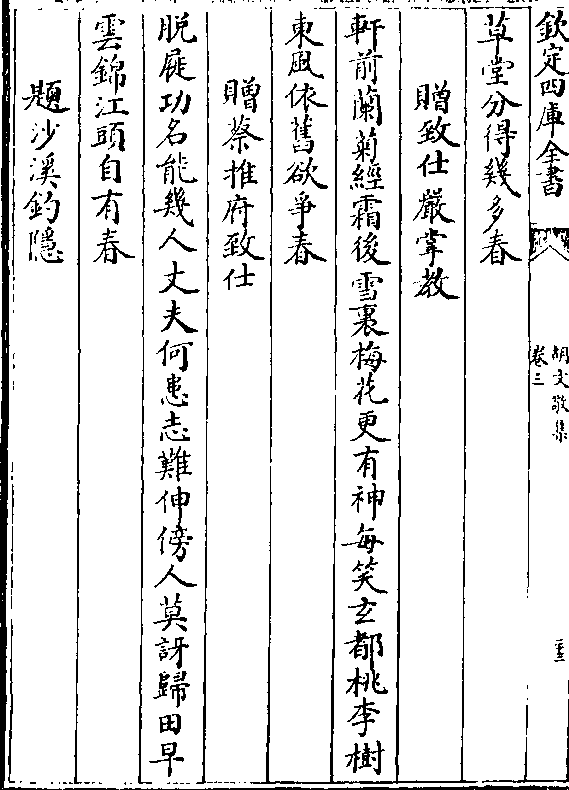 欽定四庫全書
胡文敬集
卷三
草堂分得幾多春
贈致仕嚴掌教
軒前蘭菊經霜後雪裏梅花更有神每笑玄都桃李樹
東風依舊欲爭春
贈蔡推府致仕
脱屣功名能幾人丈夫何患志難伸傍人莫訝歸田早
雲錦江頭自有春
題沙溪釣隱